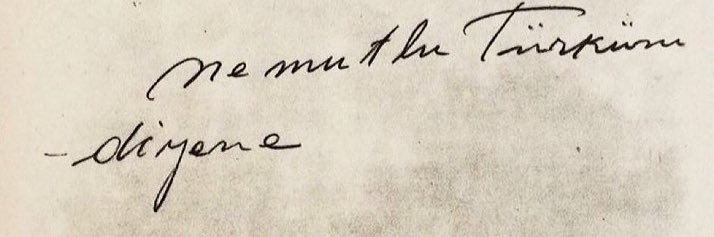 ne mutlu Türküm
-diyene